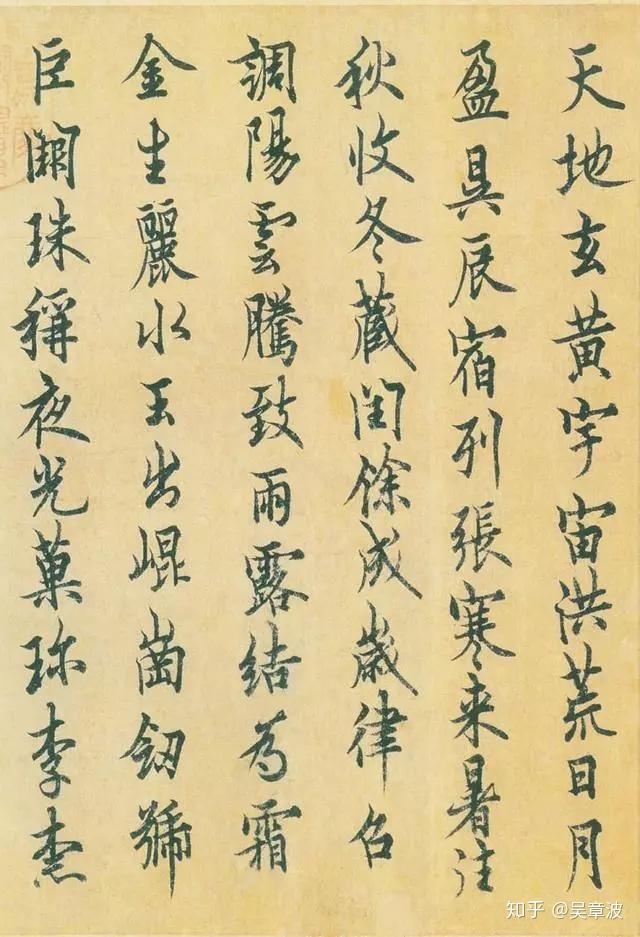 天地玄黃宇宙洪荒日月
盈昃辰宿列張寒来暑往
秋收冬蔵閏餘成歳律召
調陽雲騰致雨露結為霜
金生麗水玉出崐崗釼號
巨闕珠稱夜光菓珎李柰
知乎 @吴章波